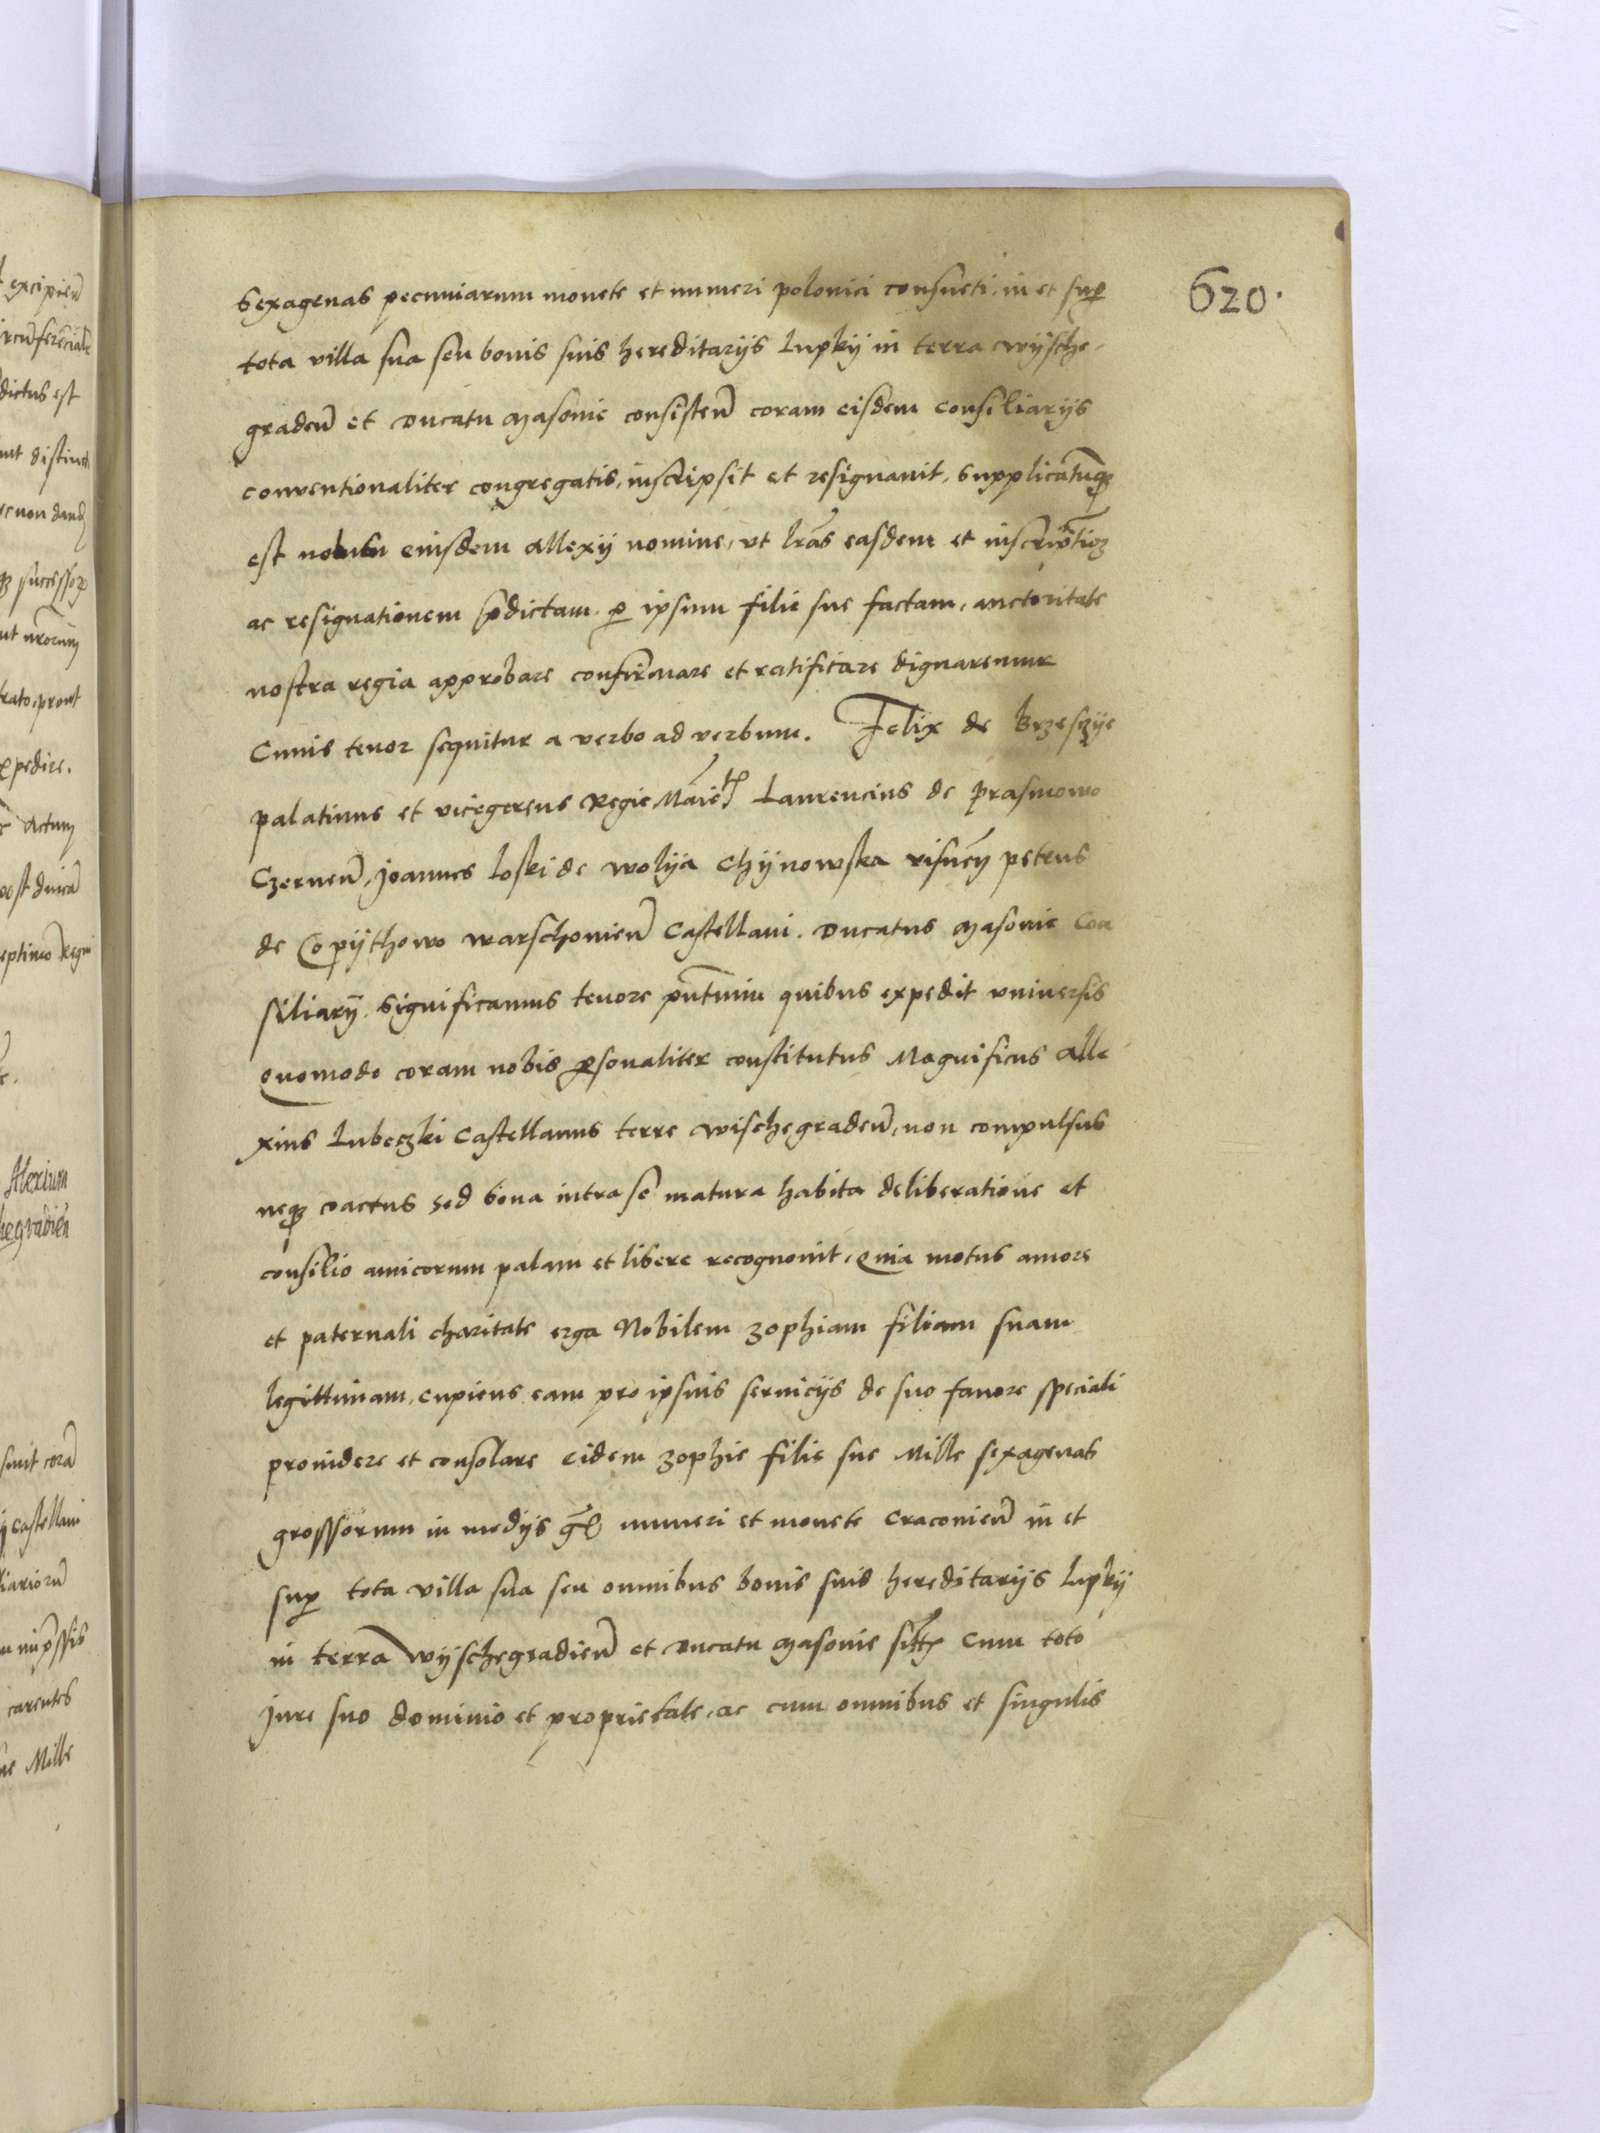 620.
Sexagenas pecuniarum monete et numeri polonici consueti, in et sup
tota villa sua seu bonis suis hereditarijs Lupky in terra wijsche-
graden̄ et Ducatu Masovie consisten̄ coram eisdem consiliarijs
conventionaliter congregatis, inscripsit et resignavit, Supplicatumq
est nobis eiusdem Allexij nomine, vt lr̄as easdem et inscriptioē
ac resignationem p̄dictam p ipsum filie sue factam, auctoritate
nostra regia approbare confirmare et ratificare dignaremur
Cuius tenor sequitur a verbo ad verbum. Felix de Brzeszije
palatinus et vicegerens Regie Maie̅t̅ Laurencius de prasmowo
Czernen̄, Joannes Loski de wolija Chijnowska visnen̄ petrus
de Copijthowo warschovien̄ Castellani. Ducatus Masovie Con
siliarij̄. Significamus tenore pn̄tium quibus expedit vniversis
Quomodo coram nobis psonaliter constitutus Magnificus Alle
xius Lubeczki Castellanus terre wischegraden̄, non compulsus
neq coactus sed bona intra se matura habita deliberatione et
consilio amicorum palam et libere recognovit, Quia motus amore
et paternali charitate erga Nobilem zophiam filiam suam
legittimam, cupiens eam pro ipsius servicijs de suo favore speciali
providere et consolare eidem zophie filie sue Mille sexagenas
grossorum in medijs gr̄ numeri et monete Cracovien̄ in et
sup tota villa sua seu omnibus bonis suis hereditarijs Lupkij
in terra wijschegradien̄ et Ducatu Masovie sitt̄ Cum toto
Jure suo dominio et proprietate, ac cum omnibus et singulis
excipien̄
dictus est
Alexium
hegradien̄
sunt cora̅
castellani
carentes
Mille